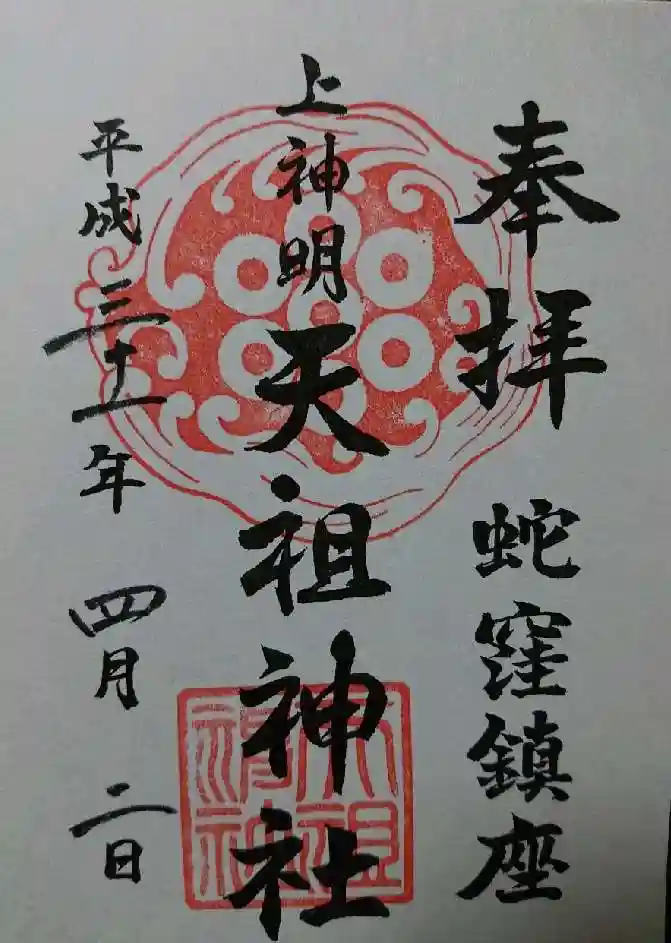 奉拝 蛇窪鎮座
上神明天祖神社
平成三十一年 四月 二日
天祖神社